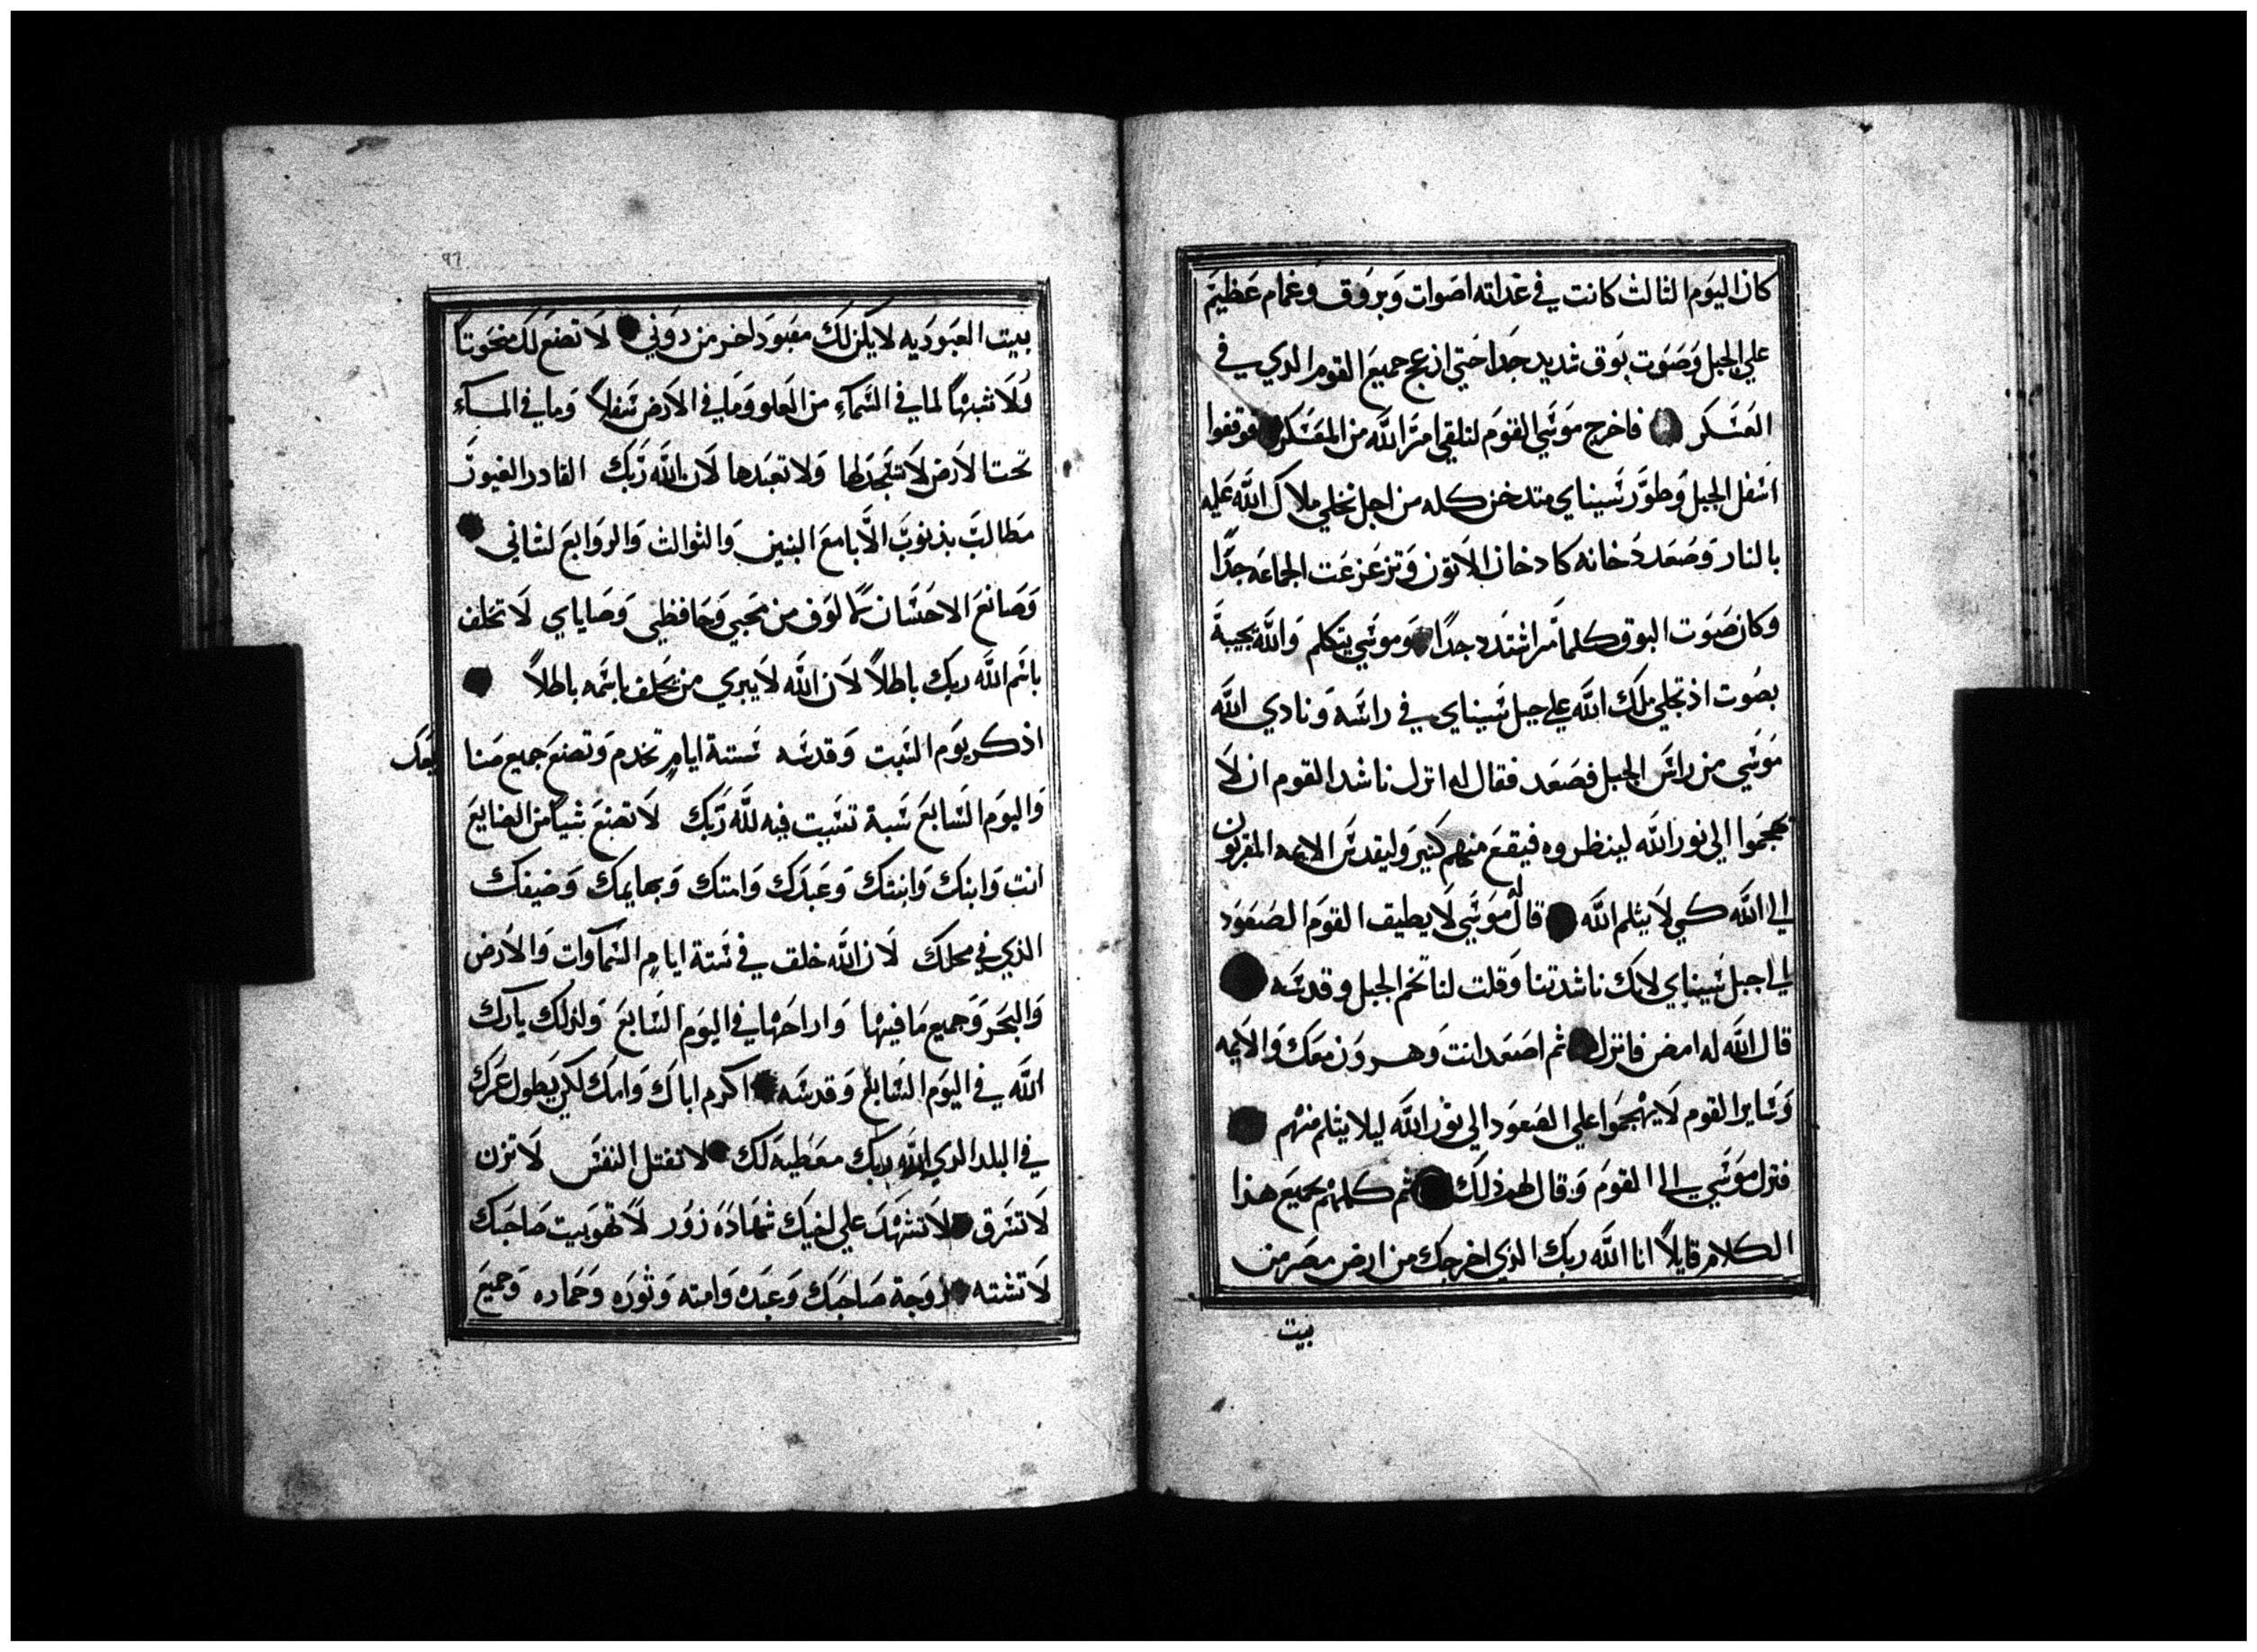 كان اليوم الثالث كانت في غداته اصوات وبروق وغمام عظيم
علي الجبل وصوت بوق شديد جدا حتي انزعج جميع القوم الدي في
العسكر فاخرج موسي القوم لتلقي امر الله من المعسكر فوقفوا
اسفل الجبل وطور سيناي متدخن كله من اجل تجلي ملاك الله عليه
بالنار وصعد دخانه كادخان الاتون وتزعزعت الجماعه جدا
وكان صوت البوق كلما مر اشتدد جدا وموسي يتكلم والله يجيبة
بصوت اذ تجلي ملك الله علي جبل سيناي في راسه ونادي الله
موسي من راس الجبل فصعد فقال له انزل ناشد القوم ان لا
يهجموا الي نور الله لينظروه فيقع منهم كثير وليقدس الايمه المقربون
الي الله كي لا يثلم الله قال له موسي لا يطيق القوم الصعود
الي جبل سيناي لانك ناشدتنا وقلت لنا تخم الجبل وقدسه
قال الله له امض فانزل ثم اصعد انت وهرون معك والايمه
وساير القوم لا يهجموا علي الصعود الي نور الله ليلا يثلم منهم
فنزل موسي الى القوم وقال لهم ذلك ثم كلمهم بجميع هذا
الكلام قايلا انا الله ربك الذي اخرجك من ارض مصر من
بيت
٩٦
بيت العبوديه لا يكن لك معبود اخر من دوني لا تصنع لك منحوتا
ولا شبها لما في السماء من العلو وما في الارض سفلا وما في الماء
تحت الارض لا تسجد لها ولا تعبدها لان الله ربك القادر الغيور
مطالب بذنوب الابا مع البنين والثوالث والروابع لشاني
وصانع الاحسان لالوف من محبي وحافظي وصاياي لا تحلف
باسم الله ربك باطلا لان الله لا يبري من يحلف باسمه باطلا
اذكر يوم السبت وقدسه ستة ايام تخدم وتصنع جميع صنا
يعك
واليوم السابع سبة تسبت فيه لله ربك لا تصنع شيا من الصنايع
انت وابنك وابنتك وعبدك وامتك وبهايمك وضيفك
الذي في محلك لان الله خلق في ستة ايام السماوات والارض
والبحر وجميع ما فيها واراحها في اليوم السابع ولذلك بارك
الله في اليوم السابع وقدسه اكرم اباك وامك لكي يطول عمرك
في البلد الذي الله ربك معطيه لك لا تقتل النفس لا تزن
لا تسرق لا تشهد علي اخيك شهادة زور لا تهو بيت صاحبك
لا تشته زوجة صاحبك وعبده وامته وثوره وحماره وجميع